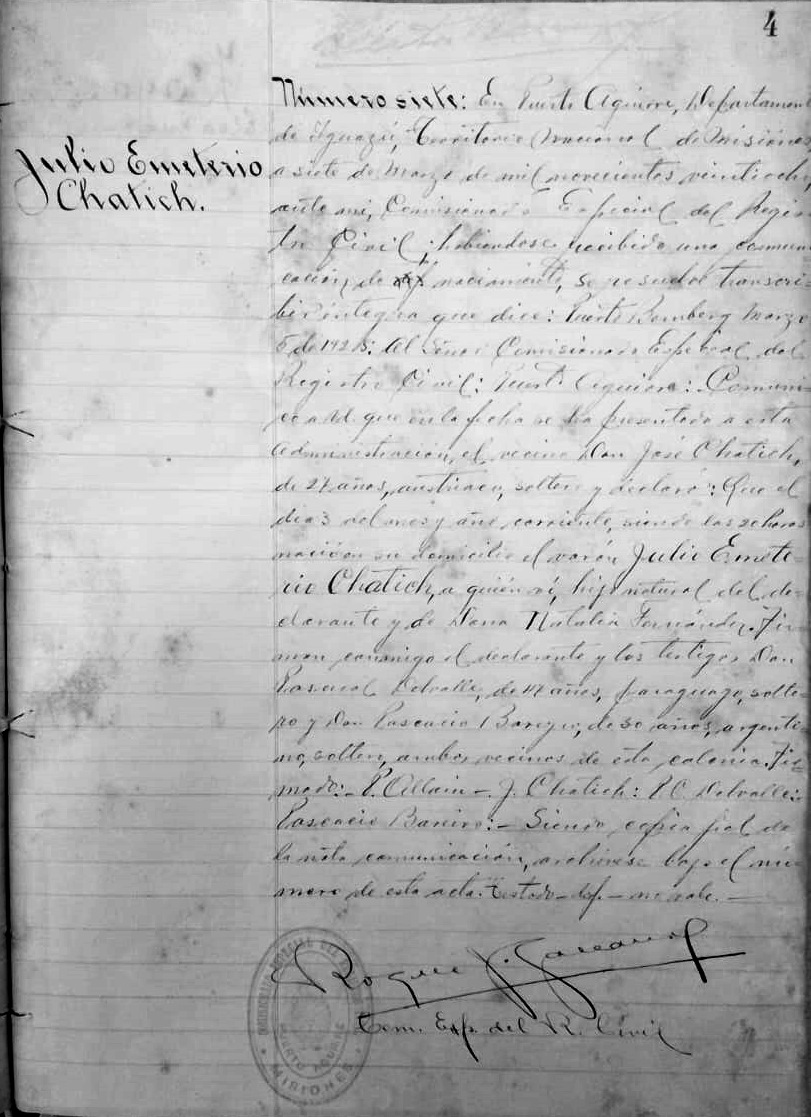 4
Número siete: En Puerto Aguirre, Departamen
de Iguazú, Territorio Nacional de Misiones
Julio Emeterio
Chatich.
a siete de Marzo de mil novecientos veintioch
ante mí, Comisionado Especial del Regis
tro Civil; habiéndose recibido una comuni
cación de nacimiento, se resuelve transcri
bir íntegra que dice: Puerto Bemberg Marzo
de 1928: Al Señor Comisionado Especial del
Registro Civil: Puerto Aguirre: Comuni
co a Ud. que en la fecha se ha presentado a esta
Administración, el vecino Don José Chatich,
de 27 años, austriaco, soltero y declaró: Que el
día 3 del mes y año corriente, siendo las horas
nació en su domicilio el varón Julio Emete
rio Chatich, a quién ví, hijo natural del de
clarante y de Doña Natalia Fernández. Fir
man conmigo el declarante y los testigos Don
Pascual Delvalle, de años, paraguayo, solte
ro y Don Pascacio Bareyro, de 30 años, argenti
no, soltero, ambos vecinos de esta colonia. Fir
mado: P. Allain - J. Chatich: P.C. Delvalle:
Pascacio Bareiro: - Siendo copia fiel de
la nota comunicación, archívese bajo el nú
mero de esta acta. Testado - def - no vale. -
Roque J.
Com. Esp. del R. Civil
PUERTO AGUIRRE
MISIONES